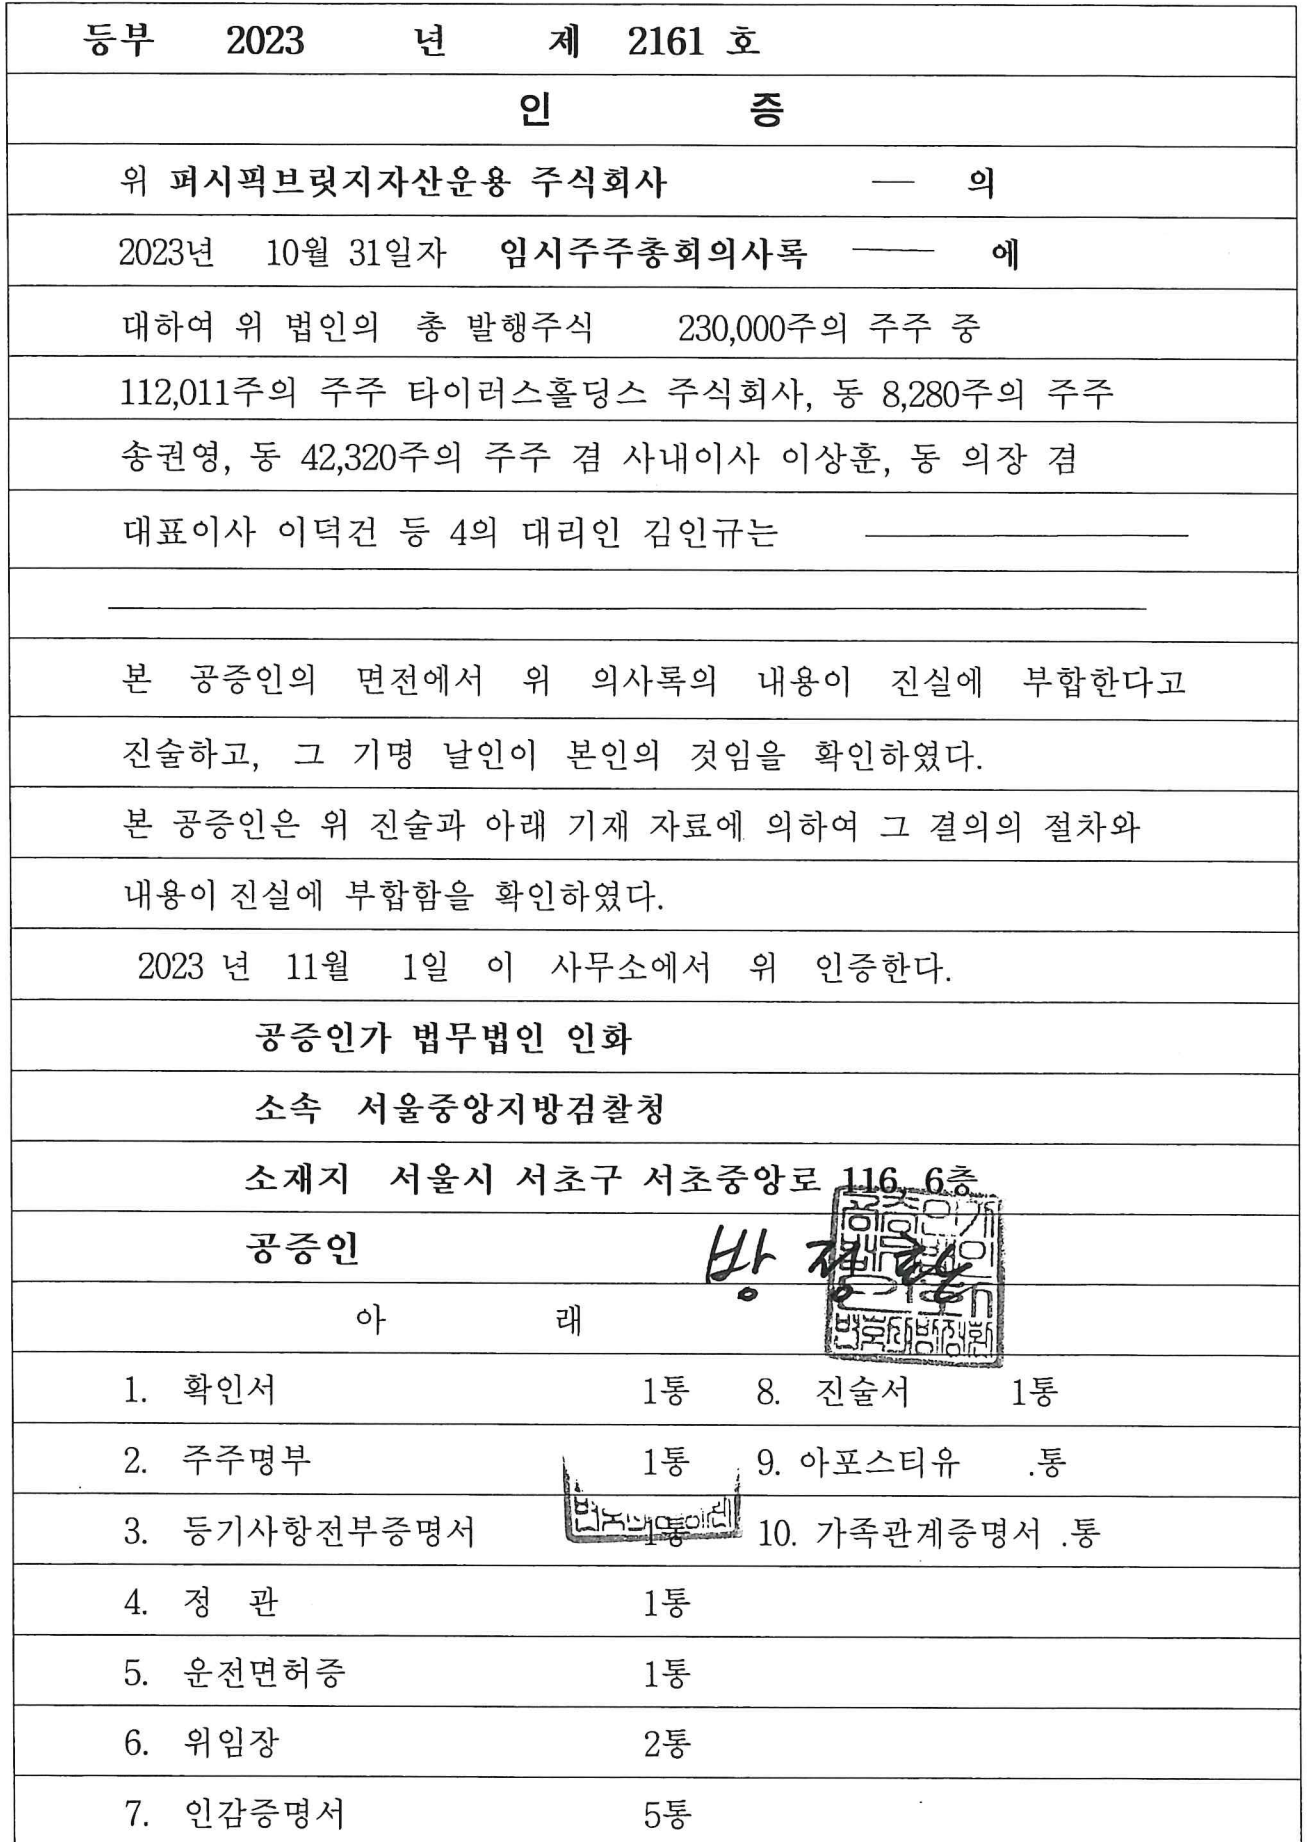 등부 2023 년 제 2161 호
인 증
위 퍼시픽브릿지자산운용 주식회사 — 의
2023년 10월 31일자 임시주주총회의사록 — 에
대하여 위 법인의 총 발행주식 230,000주의 주주 중
112,011주의 주주 타이러스홀딩스 주식회사, 동 8,280주의 주주
송권영, 동 42,320주의 주주 겸 사내이사 이상훈, 동 의장 겸
대표이사 이덕건 등 4의 대리인 김인규는
본 공증인의 면전에서 위 의사록의 내용이 진실에 부합한다고
진술하고, 그 기명 날인이 본인의 것임을 확인하였다.
본 공증인은 위 진술과 아래 기재 자료에 의하여 그 결의의 절차와
내용이 진실에 부합함을 확인하였다.
2023 년 11월 1일 이 사무소에서 위 인증한다.
공증인가 법무법인 인화
소속 서울중앙지방검찰청
소재지 서울시 서초구 서초중앙로 116, 6층
공증인 방
아 래
1. 확인서 1통 8. 진술서 1통
2. 주주명부 1통 9. 아포스티유 .통
3. 등기사항전부증명서 1통 10. 가족관계증명서 .통
4. 정 관 1통
5. 운전면허증 1통
6. 위임장 2통
7. 인감증명서 5통